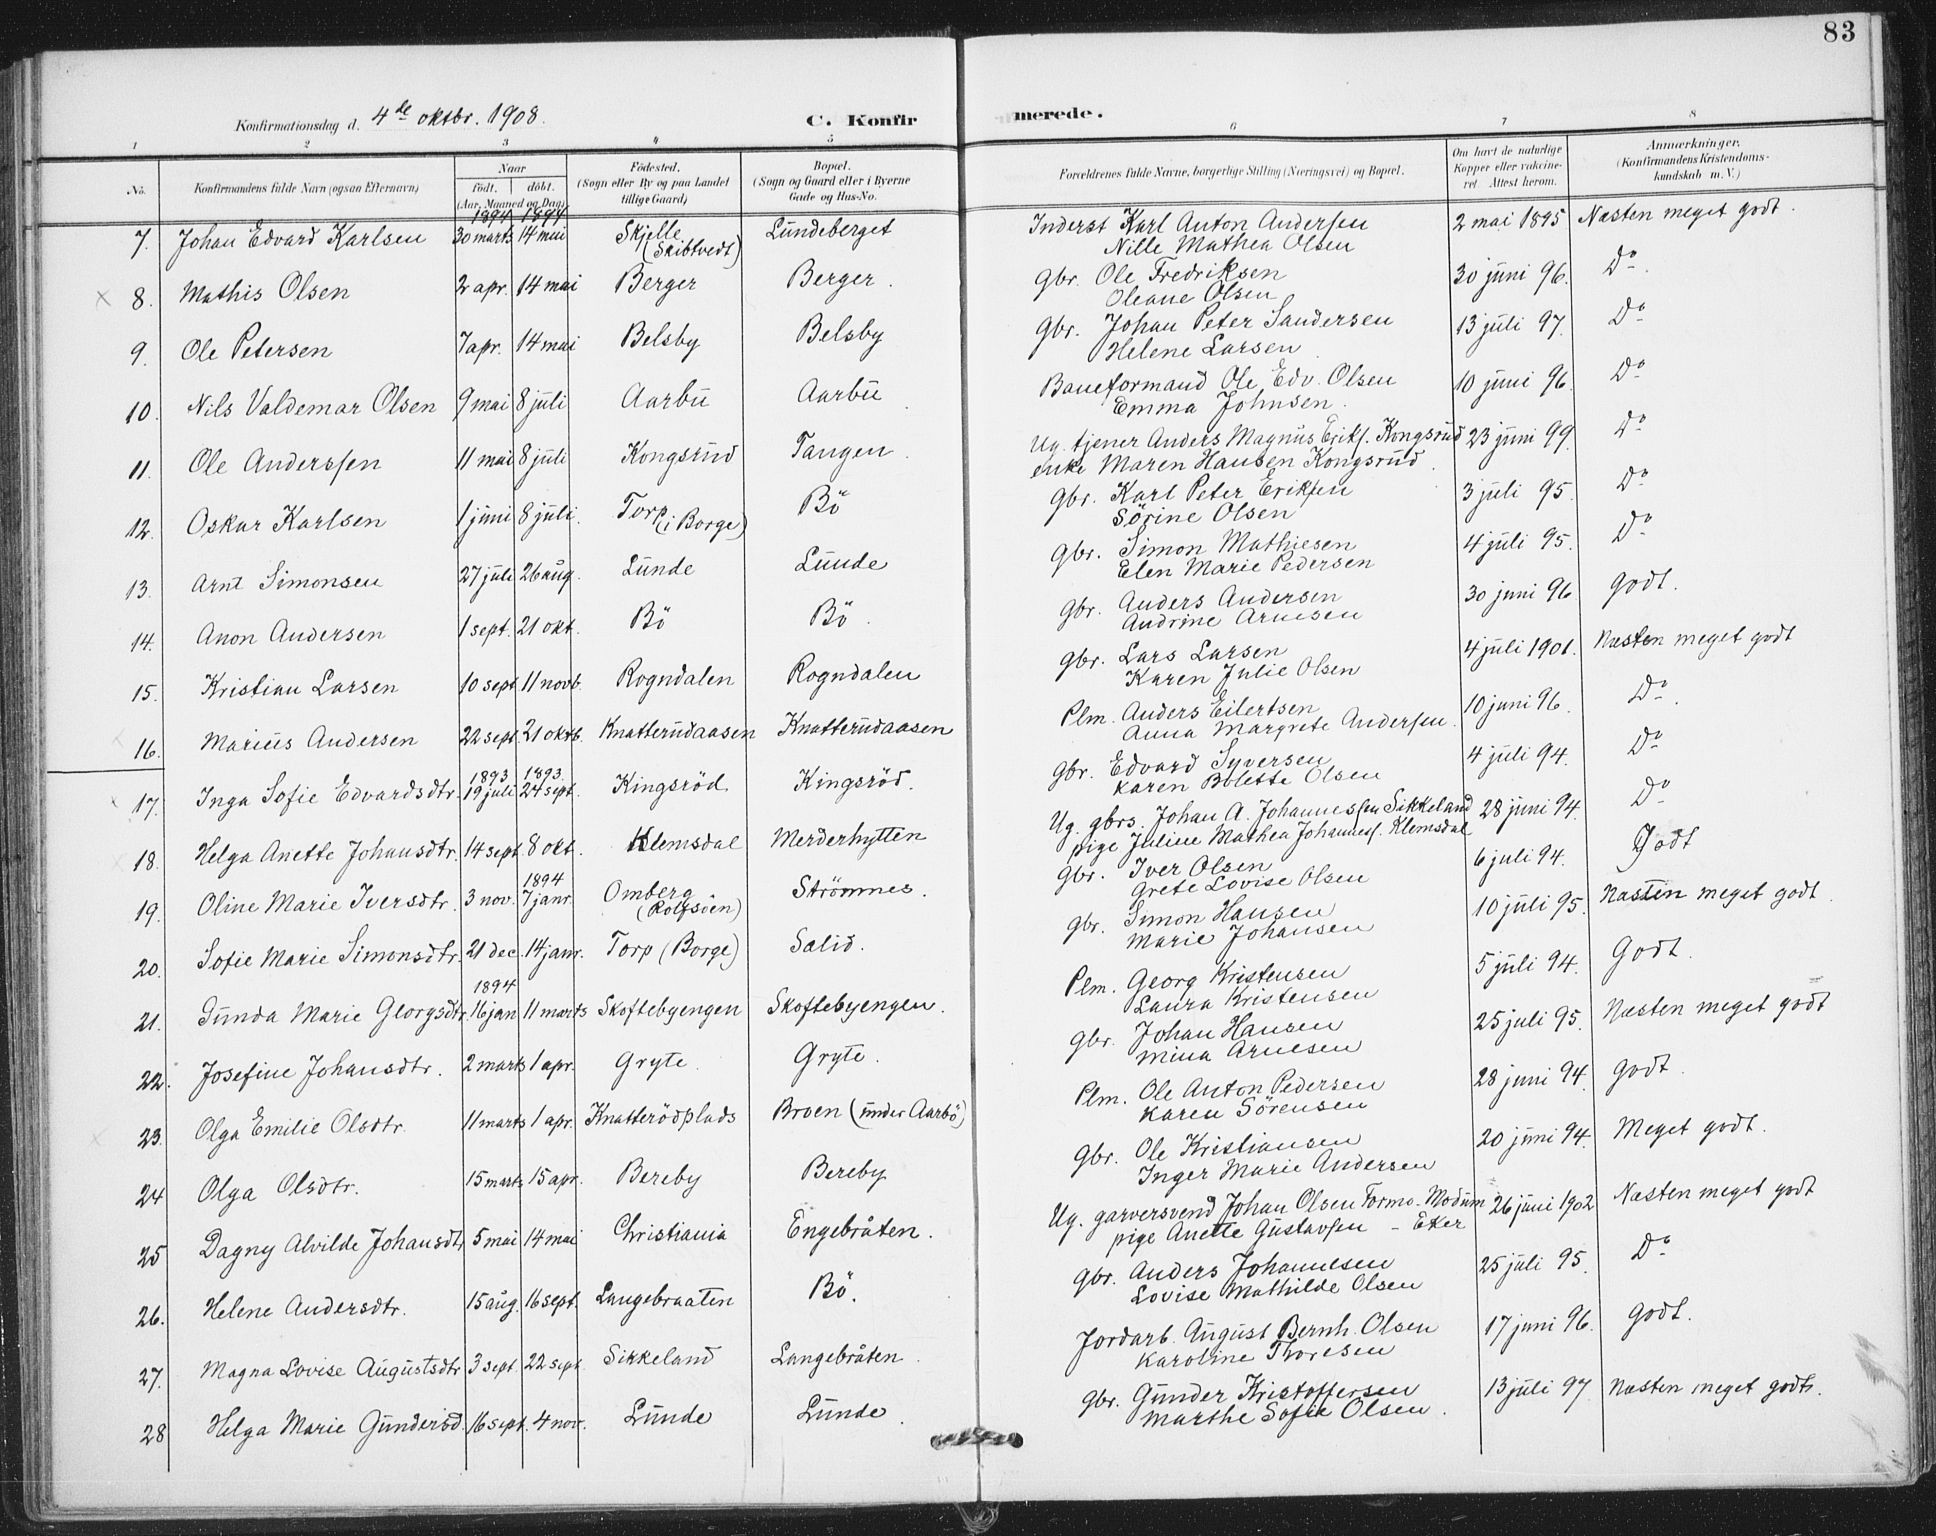 83
Konfirmationsdag d. 4de oktbr. 1908.
C. Konfirmerede.
1 2 3 4 5 6 7 8
No.
Konfirmandens fulde Navn (ogsaa Efternavn)
Naar
födt. | döbt.
(Aar, Maaned og Dag)
Födested.
(Sogn eller By og paa Landet
tillige Gaard)
Bopæl.
(Sogn og Gaard eller i Byerne
Gade og Hus-No.
Forældrenes fulde Navne, borgerlige Stilling (Næringsvei) og Bopæl.
Om havt de naturlige
Kopper eller vakcine-
ret. Attest herom.
Anmærkninger.
(Konfirmandens Kristendoms-
kundskab m. V.)
1894 1894
7. Johan Edvard Karlsen 30 marts 14 mai Skjelle (Skibtvedt) Lundeberget Inderst Karl Anton Anderssen 2 mai 1895 Næsten meget godt.
Nille Mathea Olsen
8. Mathis Olsen 2 apr. 14 mai Berger Berger. Gbr. Ole Fredriksen 30 juni 96. Do.
Oleane Olsen
9. Ole Petersen 7 apr. 14 mai Belsby Belsby Gbr. Johan Peter Sandersen 13 juli 97. Do
Helene Larsen
10. Nils Valdemar Olsen 9 mai 8 juli Aarbu Aarbu Baneformand Ole Edv. Olsen 10 juni 96. Do
Emma Johnsen.
11. Ole Anderssen 11 mai 8 juli Kongsrud Tangen. Ug. tjener Anders Magnus Eriks. Kongsrud 23 juni 99. Do
enke Maren Hansen Kongsrud.
12. Oskar Karlsen 1 juni 8 juli. Torp (i Borge) Bö Gbr. Karl Peter Erikssen 3 juli 95. Do
Sörine Olsen
13. Arnt Simonsen 27 juli 26 aug. Lunde Lunde Gbr. Simon Mathiesen 4 juli 95. Do
Elen Marie Pedersen
14. Anon Andersen 1 sept. 21 okt. Bö Bö. Gbr. Anders Andersen 30 juni 96 godt.
Andrine Arnesen
15. Kristian Larsen 10 sept. 11 novb. Rogndalen Rogndalen Gbr. Lars Larsen 4 juli 1901. Næsten meget godt
Karen Julie Olsen
16. Marius Andersen 22 sept. 21 oktb. Knatterudaasen Knatterudaasen Plm. Anders Eilertsen 10 juni 96. Do.
Anna Margrete Anderssen.
1893 1893.
17. Inga Sofie Edvardsdtr. 19 juli 24 sept. Kingsröd Kingsröd. Gbr. Edvard Syversen 4 juli 94. Do
Karen Bolette Olsen
18. Helga Anette Johansdtr. 14 sept. 8 okt. Klemsdal Merderhytten Ug. gbrs. Johan A. Johannessen Sikkeland 28 juni 94. Do
pige Juline Mathea Johanness. Klemsdal
1894
19. Oline Marie Iversdtr. 3 nov. 7 janr. Omberg (Rolfsöen) Strömnes. Gbr. Iver Olsen 6 juli 94. Godt
Grete Lovise Olsen
20. Sofie Marie Simonsdtr. 21 dec. 14 janr. Torp (Borge) Salid. Gbr. Simon Hansen 10 juli 95. Næsten meget godt.
Marie Johansen
1894
21. Gunda Marie Georgsdtr. 16 jan 11 marts Skoftebyengen Skoftebyengen. Plm. Georg Kristensen 5 juli 94. Godt.
Laura Kristensen
22. Josefine Johansdtr. 2 marts 1 apr. Gryte Gryte. Gbr. Johan Hansen 25 juli 95. Næsten meget godt
Mina Arnesen
23. Olga Emilie Olsdtr. 11 marts 1 apr. Knatterödplads Broen (under Aarbö) Plm. Ole Anton Pedersen 28 juni 94. godt.
Karen Sörensen
24 Olga Olsdtr. 15 marts 15 apr. Bereby Bereby Gbr. Ole Kristiansen 20 juni 94. Meget godt.
Inger Marie Andersen
25 Dagny Alvilde Johansdtr 5 mai 14 mai Christiania Engebråten. Ug. garversvend Johan Olsen Tormo. Modum 26 juni 1902 Næsten meget godt
pige Anette Gustavssen - Eker
26. Helene Andersdtr. 15 aug. 16 sept. Langebraaten Bö. Gbr. Anders Johannesen 25 juli 95. Do
Lovise Mathilde Olsen
27. Magna Lovise Augustsdtr 3 sept. 22 sept. Sikkeland Langebråten. Jordarb. August Bernh. Olsen 17 juni 96. godt.
Karoline Thoresen
28 Helga Marie Gundersd. 16 sept. 4 nov. Lunde Lunde. Gbr. Gunder Kristoffersen 13 juli 97 Næsten meget godt.
Marthe Sofie Olsen.